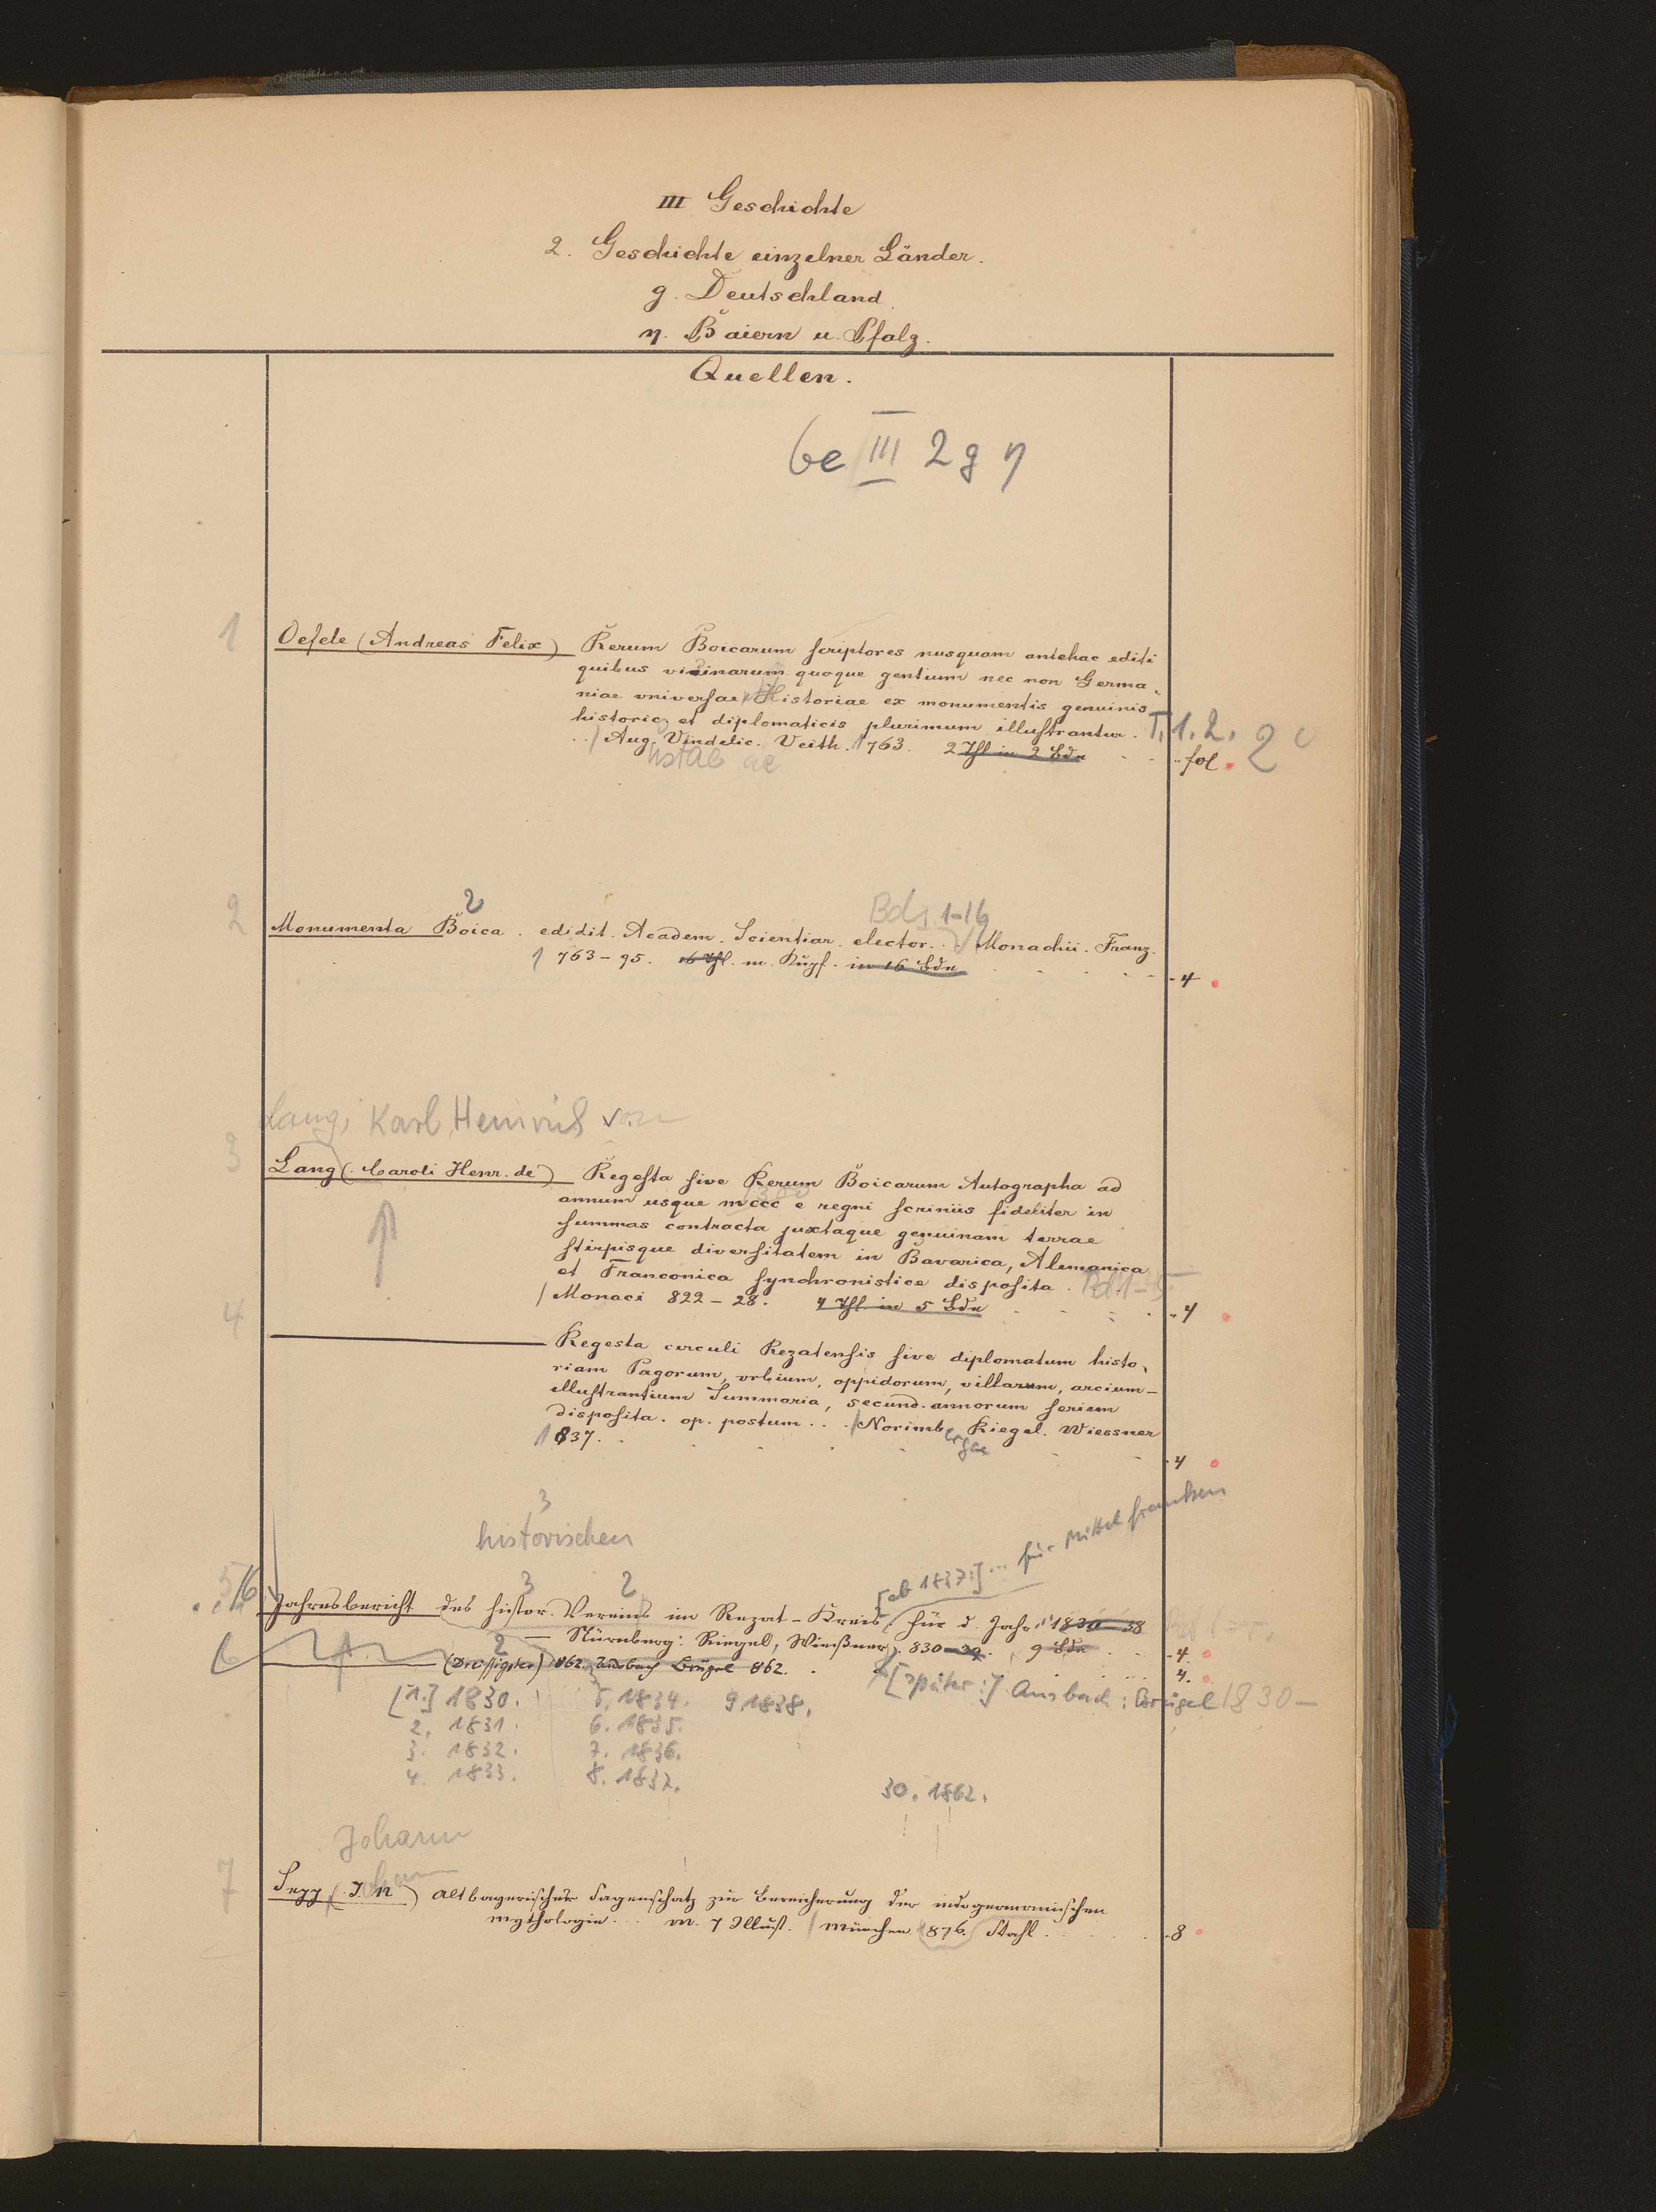 III Geschichte
2. Geschichte einzelner Länder.
g. Deutschland
η. Baiern u. Pfalz.
Quellen.
Ge III 2 g η
1 Oefele (Andreas Felix) Rerum Boicarum scriptores nusquam antehac editi
quibus vicinarum quoque gentium nec non Germa-
niae universae Historiae ex monumentis genuinis
historic. et diplomaticis plurimum illustrantur. T. 1. 2.
Aug. Vindelic. Veith. 1763. 2 Thl in 2 Bdn fol. 2°
2 2
Bd. 1-16
Monumenta Boica. edidit. Academ. Scientiar. elector. Monachii. Franz.
1763-95. 16 Thl. m. Kupf. in 16 Bdn 4
Lang, Karl Heinrich von
3 Lang (Caroli Henr. de) Regesta sive Rerum Boicarum Autographa ad
1300
annum usque mccc e regni scriniis fideliter in
summas contracta juxtaque genuinam terrae
stirpisque diversitatem in Bavarica, Alemanica
et Franconica synchronistice disposita. Bd. 1-5
Monaci 822-28. 4 Thl. in 5 Bdn 4
4
Regesta circuli Rezatensis sive diplomatum histo-
riam Pagorum, urbium, oppidorum, villarum, arcium-
illustrantium Summaria, secund. annorum seriem
disposita. op. postum. Norimbergae Riegel. Wiessner
1837. 4
3
historischen
[ab 1837:] ... für Mittelfranken
5/6 3 2
Jahresbericht des histor. Vereins im Rezat-Kreis für d. Jahr 1830-38
Nürnberg: Riegel, Wießner. 830-39. 9 Bde 4.
6 2 (Dreissigster) 1862. Ansbach Brügel 862. 4.
[später:] Ansbach: Brügel 1830-
[1.] 1830. 5. 1834. 9. 1838.
2. 1831. 6. 1835.
3. 1832. 7. 1836.
4. 1833. 8. 1837.
30. 1862.
Johann
7 Sepp (J. N) altbayerischer Sagenschatz zur Bereicherung der indogermanischen
Mythologie. m. 7 Illust. München 1876. Stahl. 8